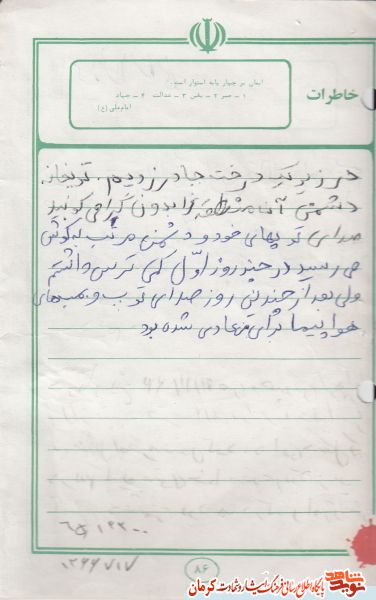 خاطرات
ایمان بر چهار پایه استوار است:
۱ - صبر ۲ - یقین ۳ - عدالت ۴ - جهاد
امام علی (ع)
در زیر یک درخت چادر زدیم. توپخانه
دشمن آن منطقه را بدون گرا می‌کوبید
صدای توپهای خودی و دشمن مرتب به گوش
می رسید در چند روز اوّل کمی ترس داشتم
ولی بعد از چندین روز صدای توپ و بمبهای
هواپیما برای من عادی شده بود
۱۹۳۰۰
۱۳۶۶/۷/۷
۸۶
نوید شاهد
پایگاه اطلاع رسانی فرهنگ ایثار و شهادت کرمان